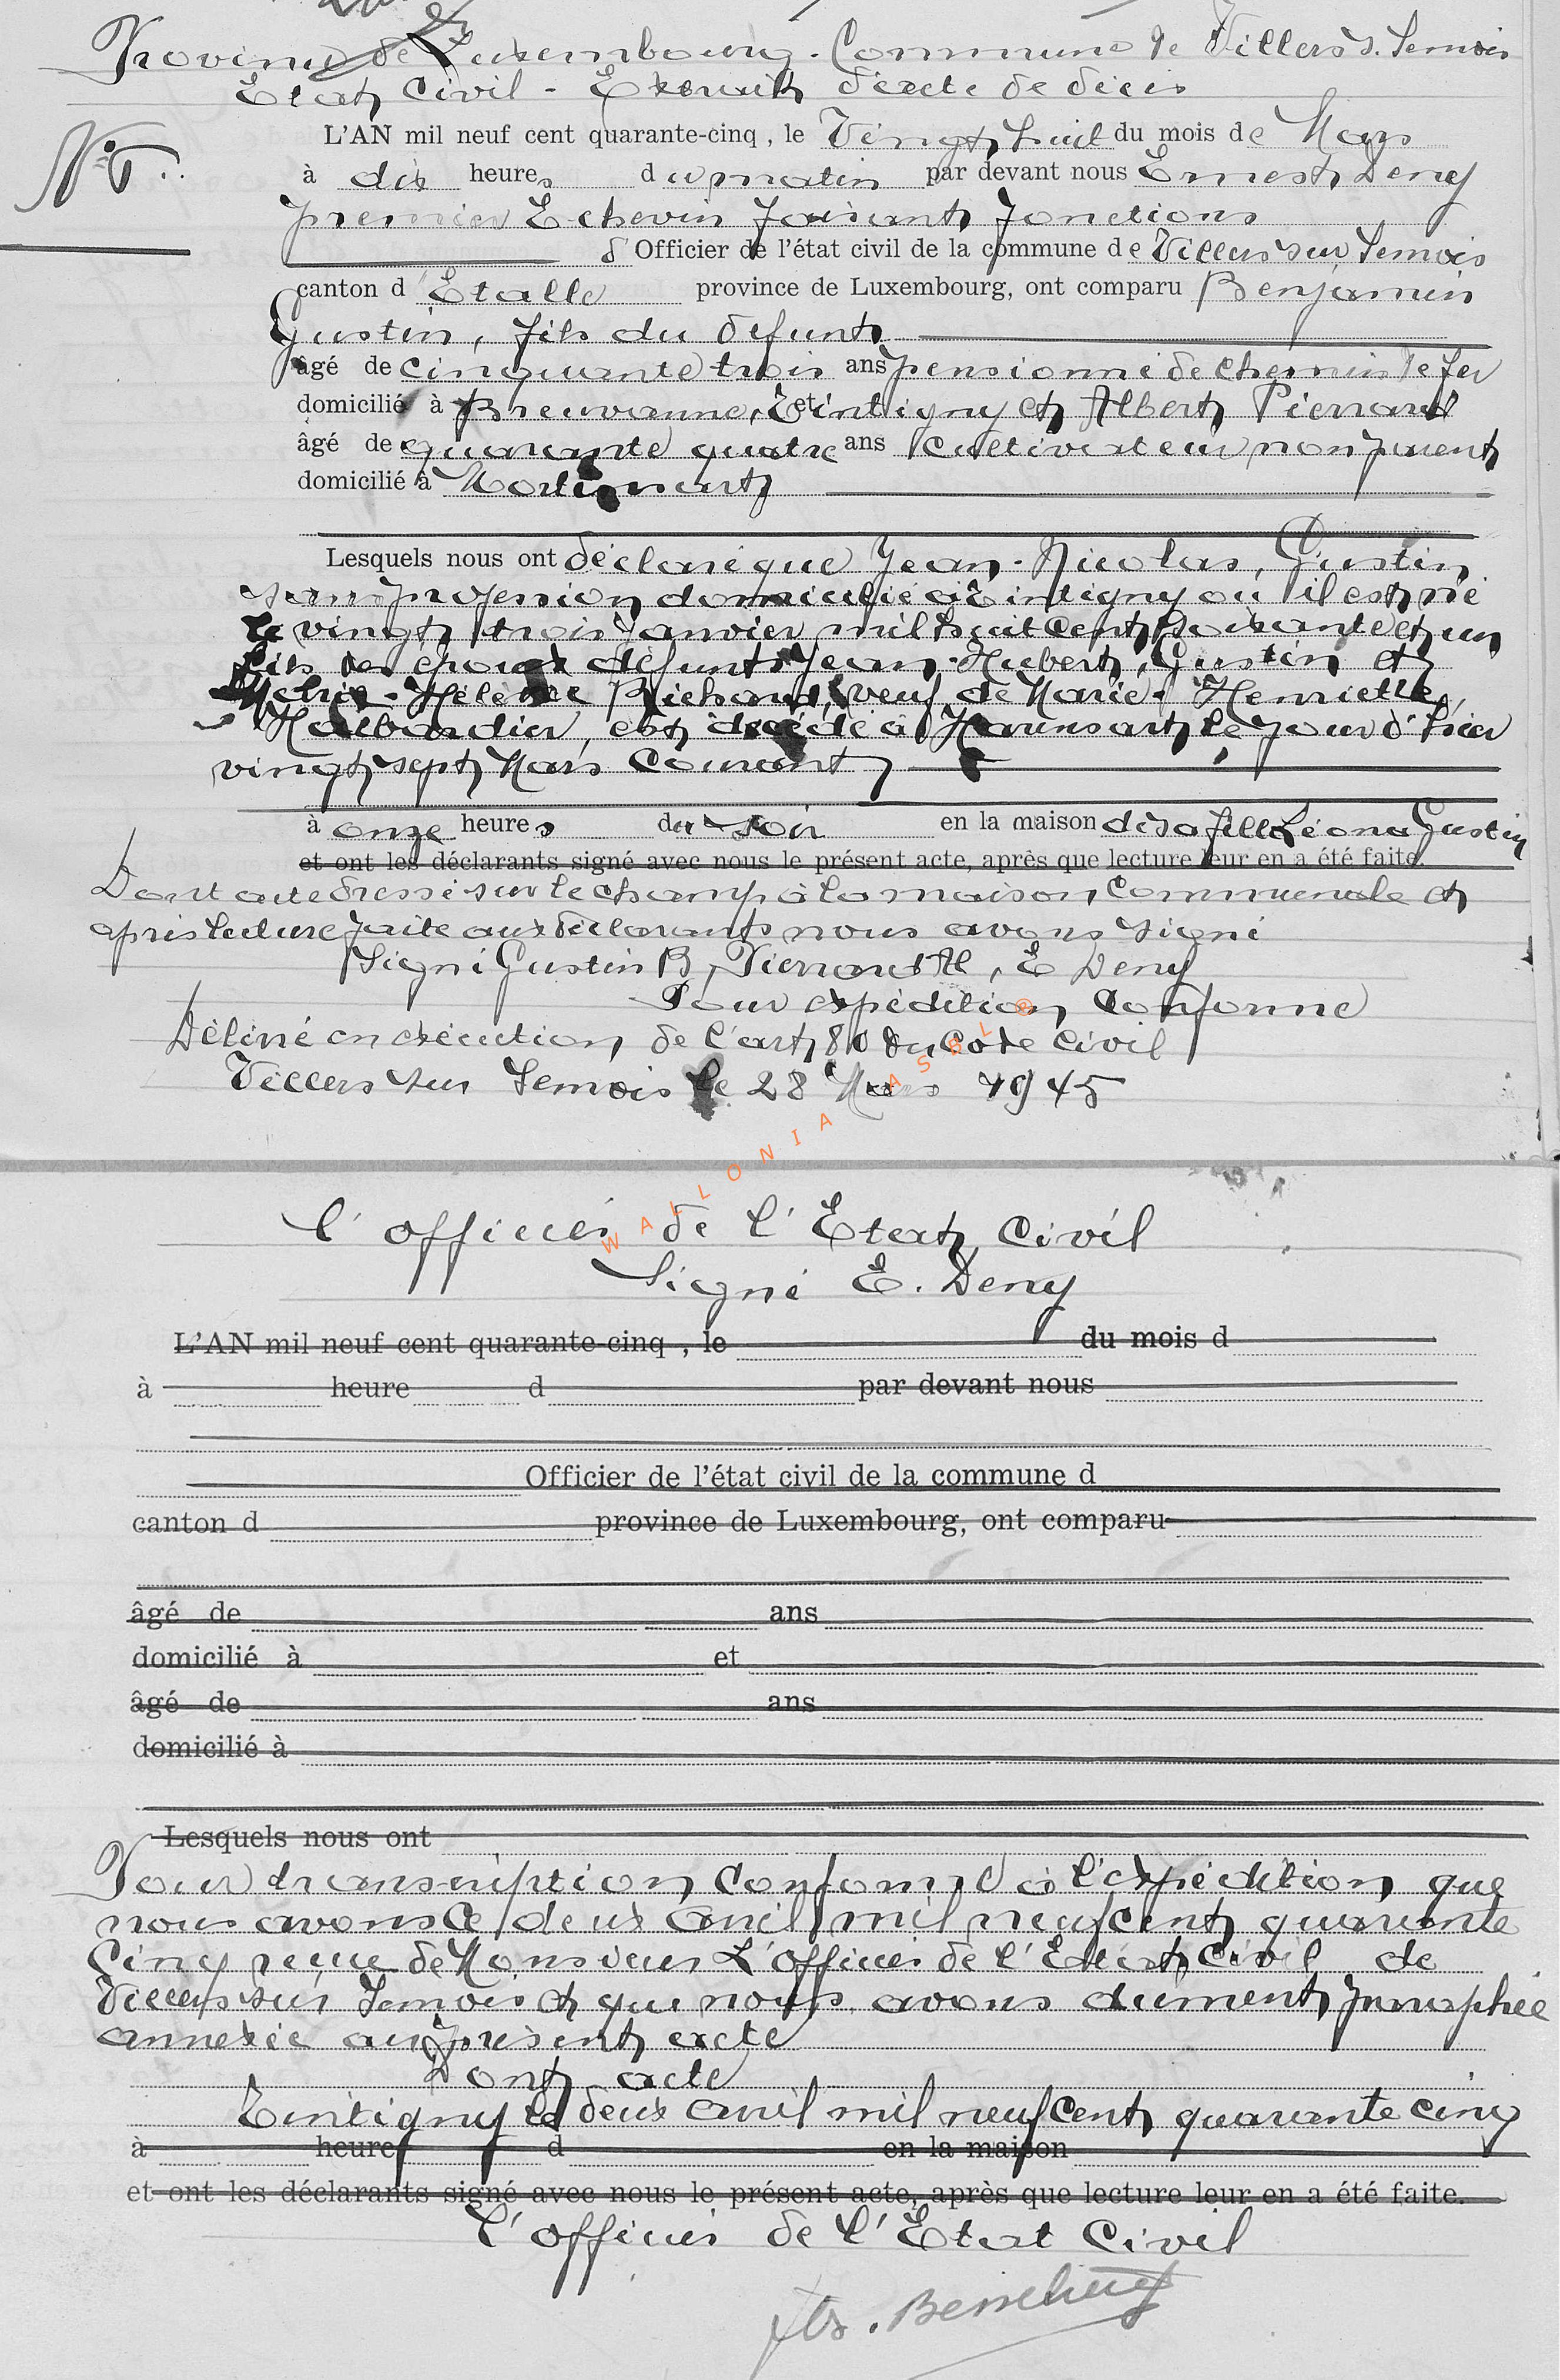 Province de Luxembourg. Commune de Villers s. Semois
Etat Civil - Extrait d'acte de décès
N° 5.
L'AN mil neuf cent quarante-cinq, le Vingt huit du mois de Mars
à dix heures du matin par devant nous Ernest Deny
premier Echevin faisant fonctions
d'Officier de l'état civil de la commune de Villers sur Semois
canton d'Etalle province de Luxembourg, ont comparu Benjamin
Gustin, fils du défunt
âgé de cinquante trois ans pensionné de chemin de fer
domicilié à Breuvanne, Tintigny et Albert Pierrard
âgé de quarante quatre ans cultivateur non parent
domicilié à
Lesquels nous ont déclaré que Jean-Nicolas, Gustin
sans profession domicilié à Tintigny où il est né
le vingt trois janvier mil huit cent soixante et un
fils des époux défunts Jean-Hubert, Gustin et
Marie-Hélène Richard, veuf de Marie-Henriette
Halbardier, est décédé à le jour d'hier
vingt sept Mars Courant
à onze heures du soir en la maison de sa fille Léona Gustin
et ont les déclarants signé avec nous le présent acte, après que lecture leur en a été faite.
Dont acte dressé sur le champ à la maison Communale et
après lecture faite aux déclarants nous avons signé
Signé Gustin B, Pierrard Al, E Deny
Pour expédition Conforme
Délivré en exécution de l'art 80 du Code Civil
Villers sur Semois le 28 Mars 1945
WALLONIA ASBL ©
L'officier de l'Etat Civil
Signé E. Deny
L'AN mil neuf cent quarante-cinq, le du mois d
à heure d par devant nous
Officier de l'état civil de la commune d
canton d province de Luxembourg, ont comparu
âgé de ans
domicilié à et
âgé de ans
domicilié à
Lesquels nous ont
Pour transcription Conforme à l'expédition que
nous avons ce deux avril mil neuf cent quarante
cinq reçue de Monsieur L'officier de l'Etat Civil de
Villers sur Semois et que nous avons dument paraphée
annexée au présent acte
Dont acte
Tintigny le deux avril mil neuf cent quarante cinq
à heure d en la maison
et ont les déclarants signé avec nous le présent acte, après que lecture leur en a été faite.
L'officier de l'Etat Civil